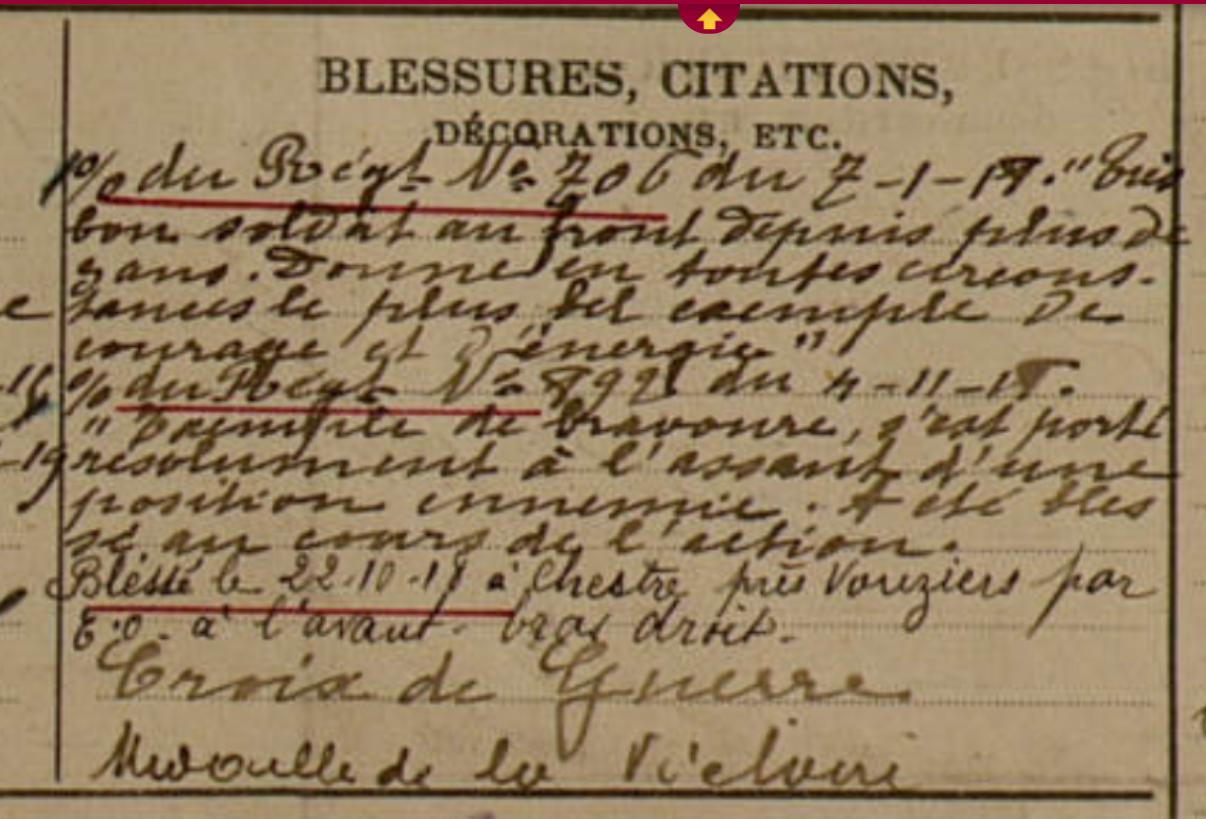 BLESSURES, CITATIONS,
DÉCORATIONS, ETC.
O/ du Régt No 706 du 7-1-18. "Très
bon soldat au front depuis plus de
3 ans. Donne en toutes circons-
tances le plus bel exemple de
courage et d'énergie"
O/ du Régt No 892 du 4-11-18.
"Exemple de bravoure, s'est porté
résolument à l'assaut d'une
position ennemie. A été bles
sé au cours de l'action.
Blessé le 22.10.18 à Chestre près Vouziers par
E.O. à l'avant-bras droit.
Croix de Guerre
Médaille de la Victoire